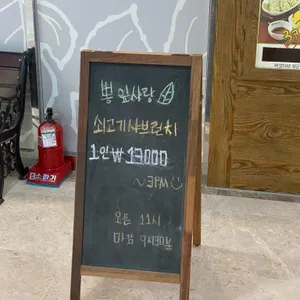 뽕잎사랑
쇠고기샤브런치
1인₩13000
~3PM
오픈 11시
마감 9시